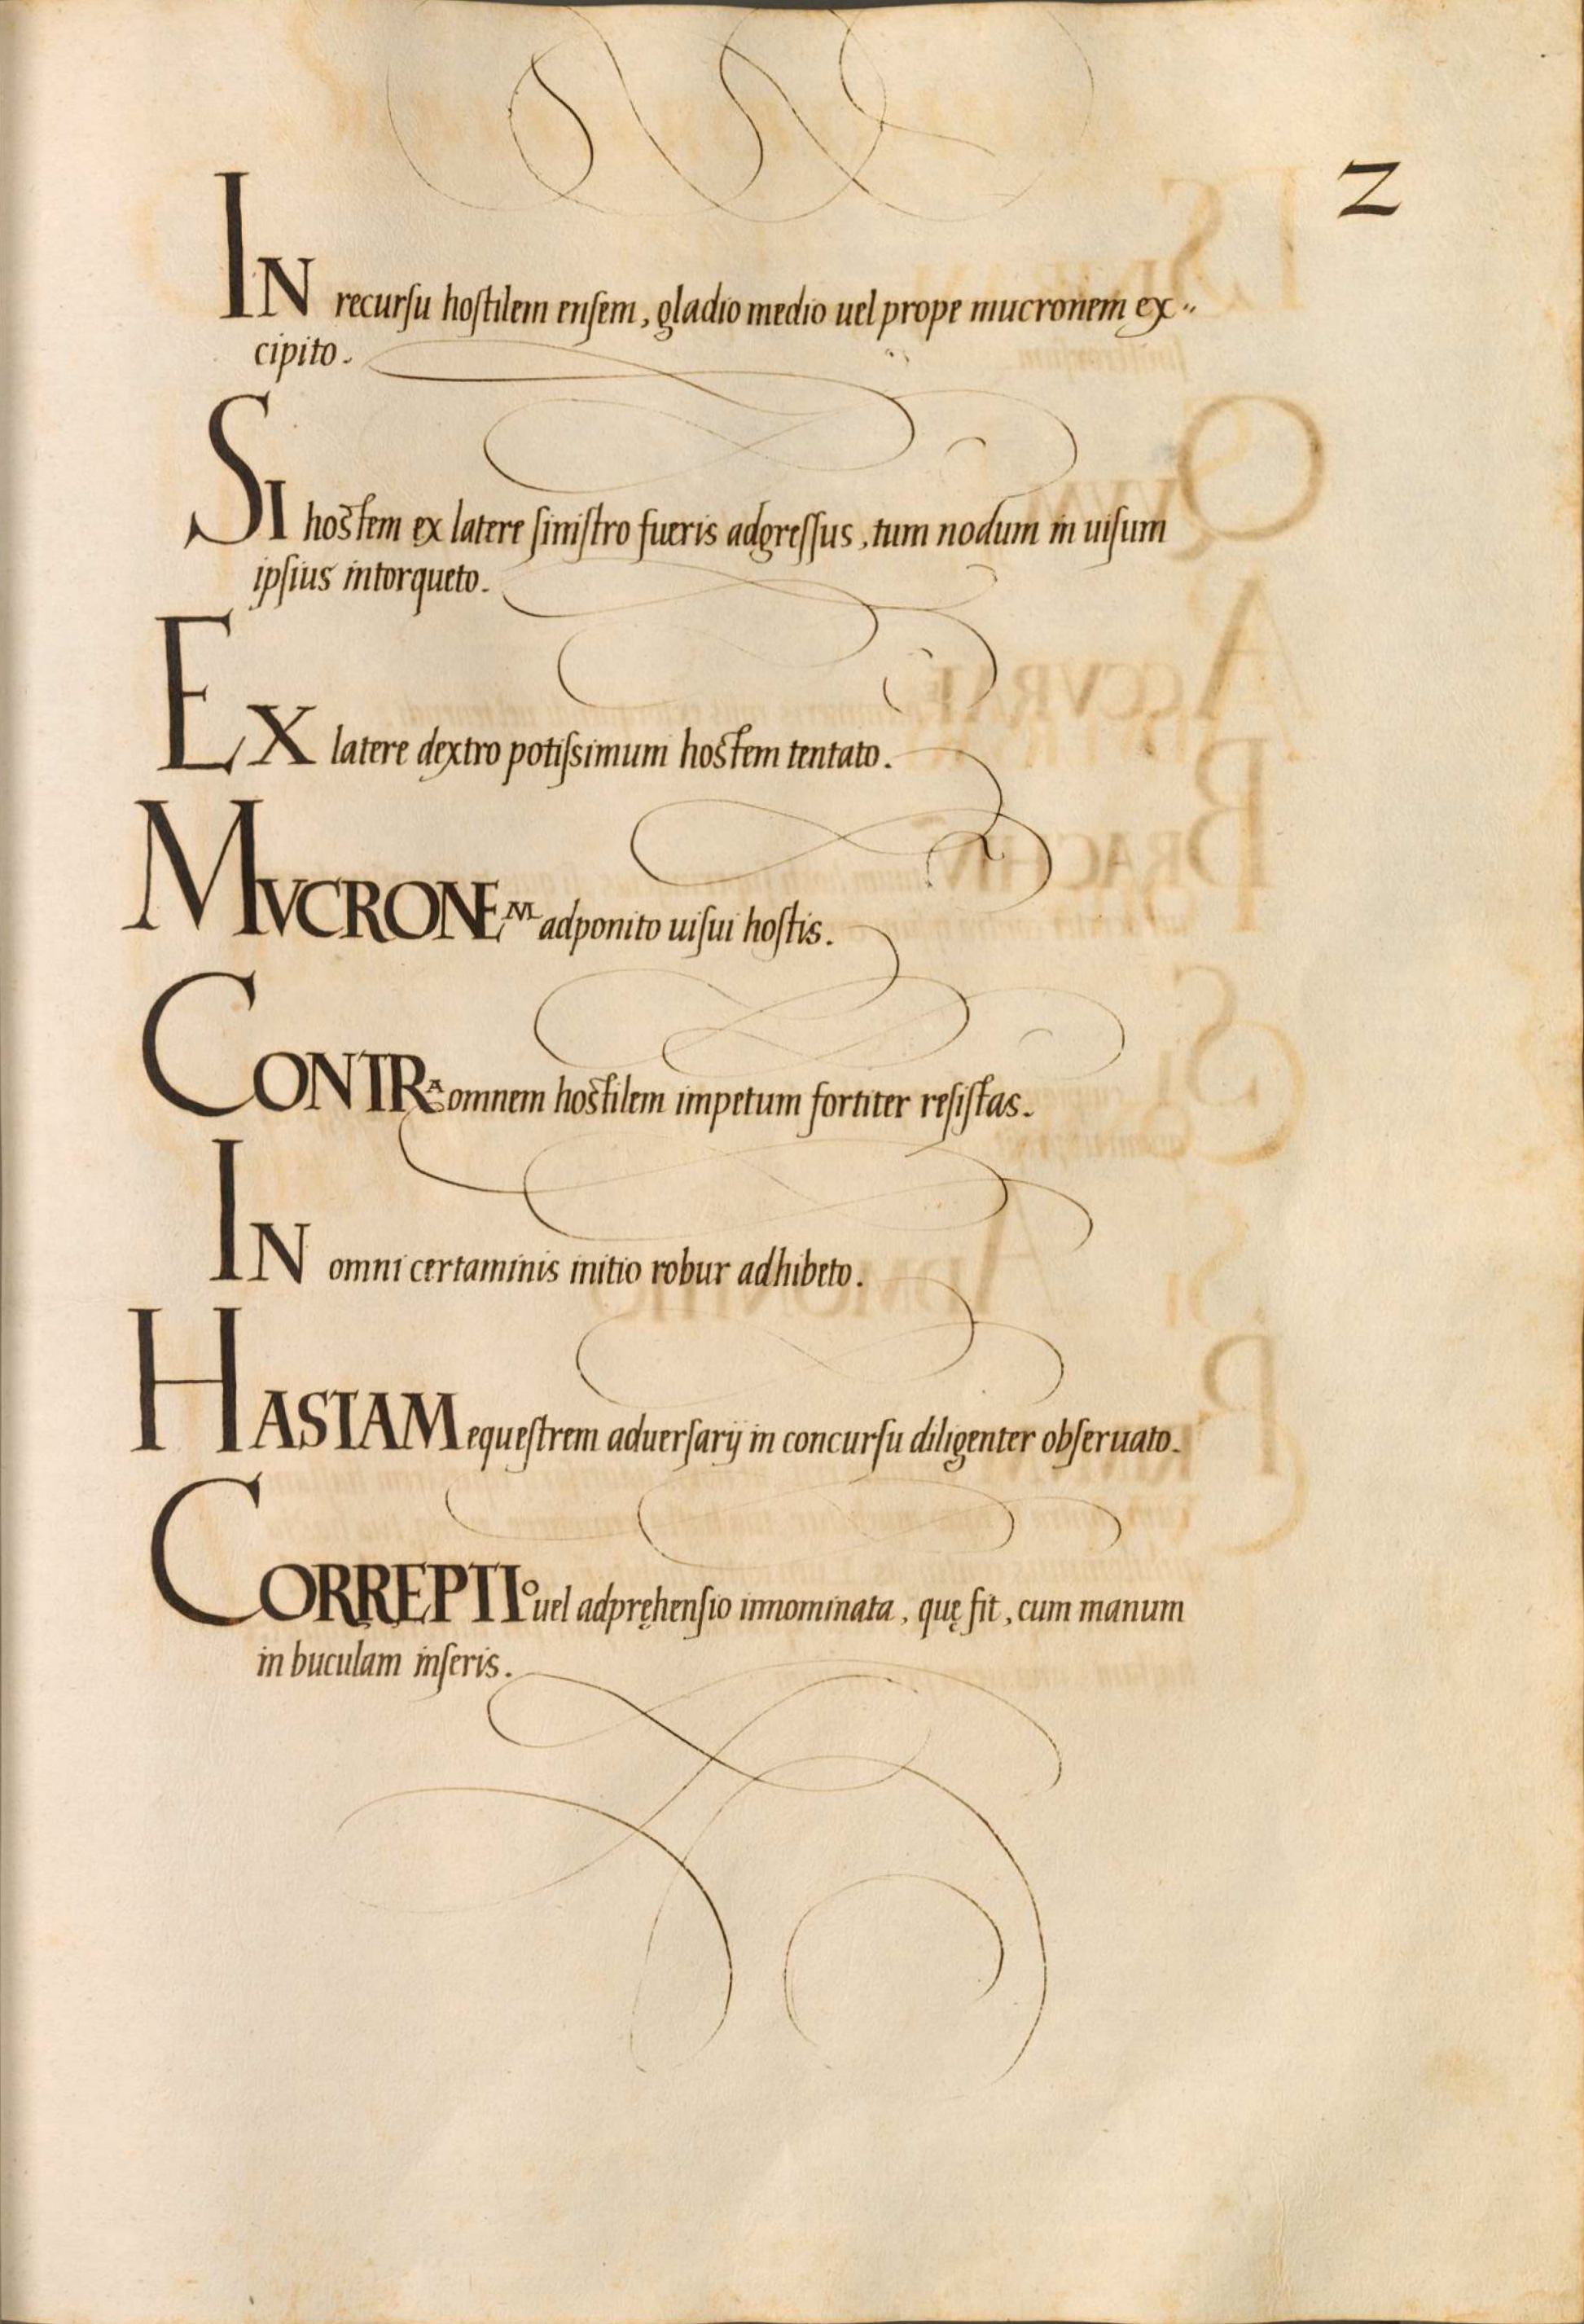 2
IN recurſu hoſtilem enſem, gladio medio uel prope mucronem ex-
cipito.
SI hoſtem ex latere ſiniſtro fueris adgreſſus, tum nodum in uiſum
ipſius intorqueto.
EX latere dextro potiſsimum hoſtem tentato.
MVCRONEM adponito uiſui hoſtis.
CONTRA omnem hoſtilem impetum fortiter reſiſtas.
IN omni certaminis initio robur adhibeto.
HASTAM equeſtrem aduerſarij in concurſu diligenter obſeruato.
CORREPTIO uel adpręhenſio innominata, quę fit, cum manum
in buculam inſeris.